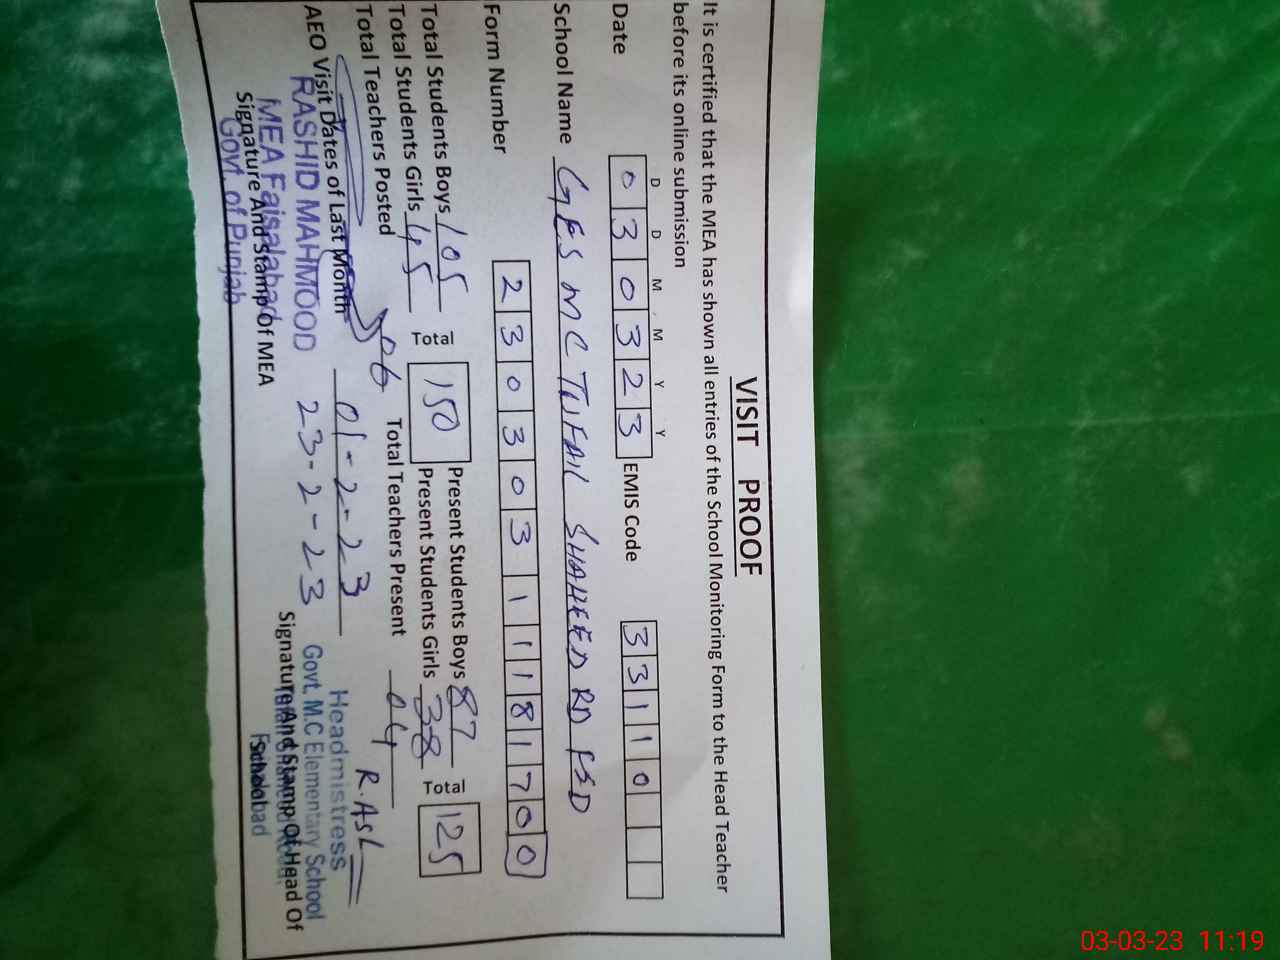 VISIT PROOF
It is certified that the MEA has shown all entries of the School Monitoring Form to the Head Teacher
before its online submission
D D M M Y Y
Date 0 3 0 3 2 3 EMIS Code 3 3 1 1 0
School Name GES MC TUFAIL SHAHEED RD FSD
Form Number 2 3 0 3 0 3 1 1 1 8 1 7 0 0
Total Students Boys 105 Tota 150 Present Students Boys 87 Tota 125
Total Students Girls 45 Present Students Girls 38
Total Teachers Posted 06 Total Teachers Present 04
AEO Visit Dates of Last Month 01-2-23
23-2-23
R.ASL
RASHID MAHMOOD
MEA Faisalabad
Govt. of Punjab
Signature And Stamp Of MEA
Headmistress
Govt. M.C Elementary School
Signature And Stamp Of Head Of
School
03-03-23 11:19